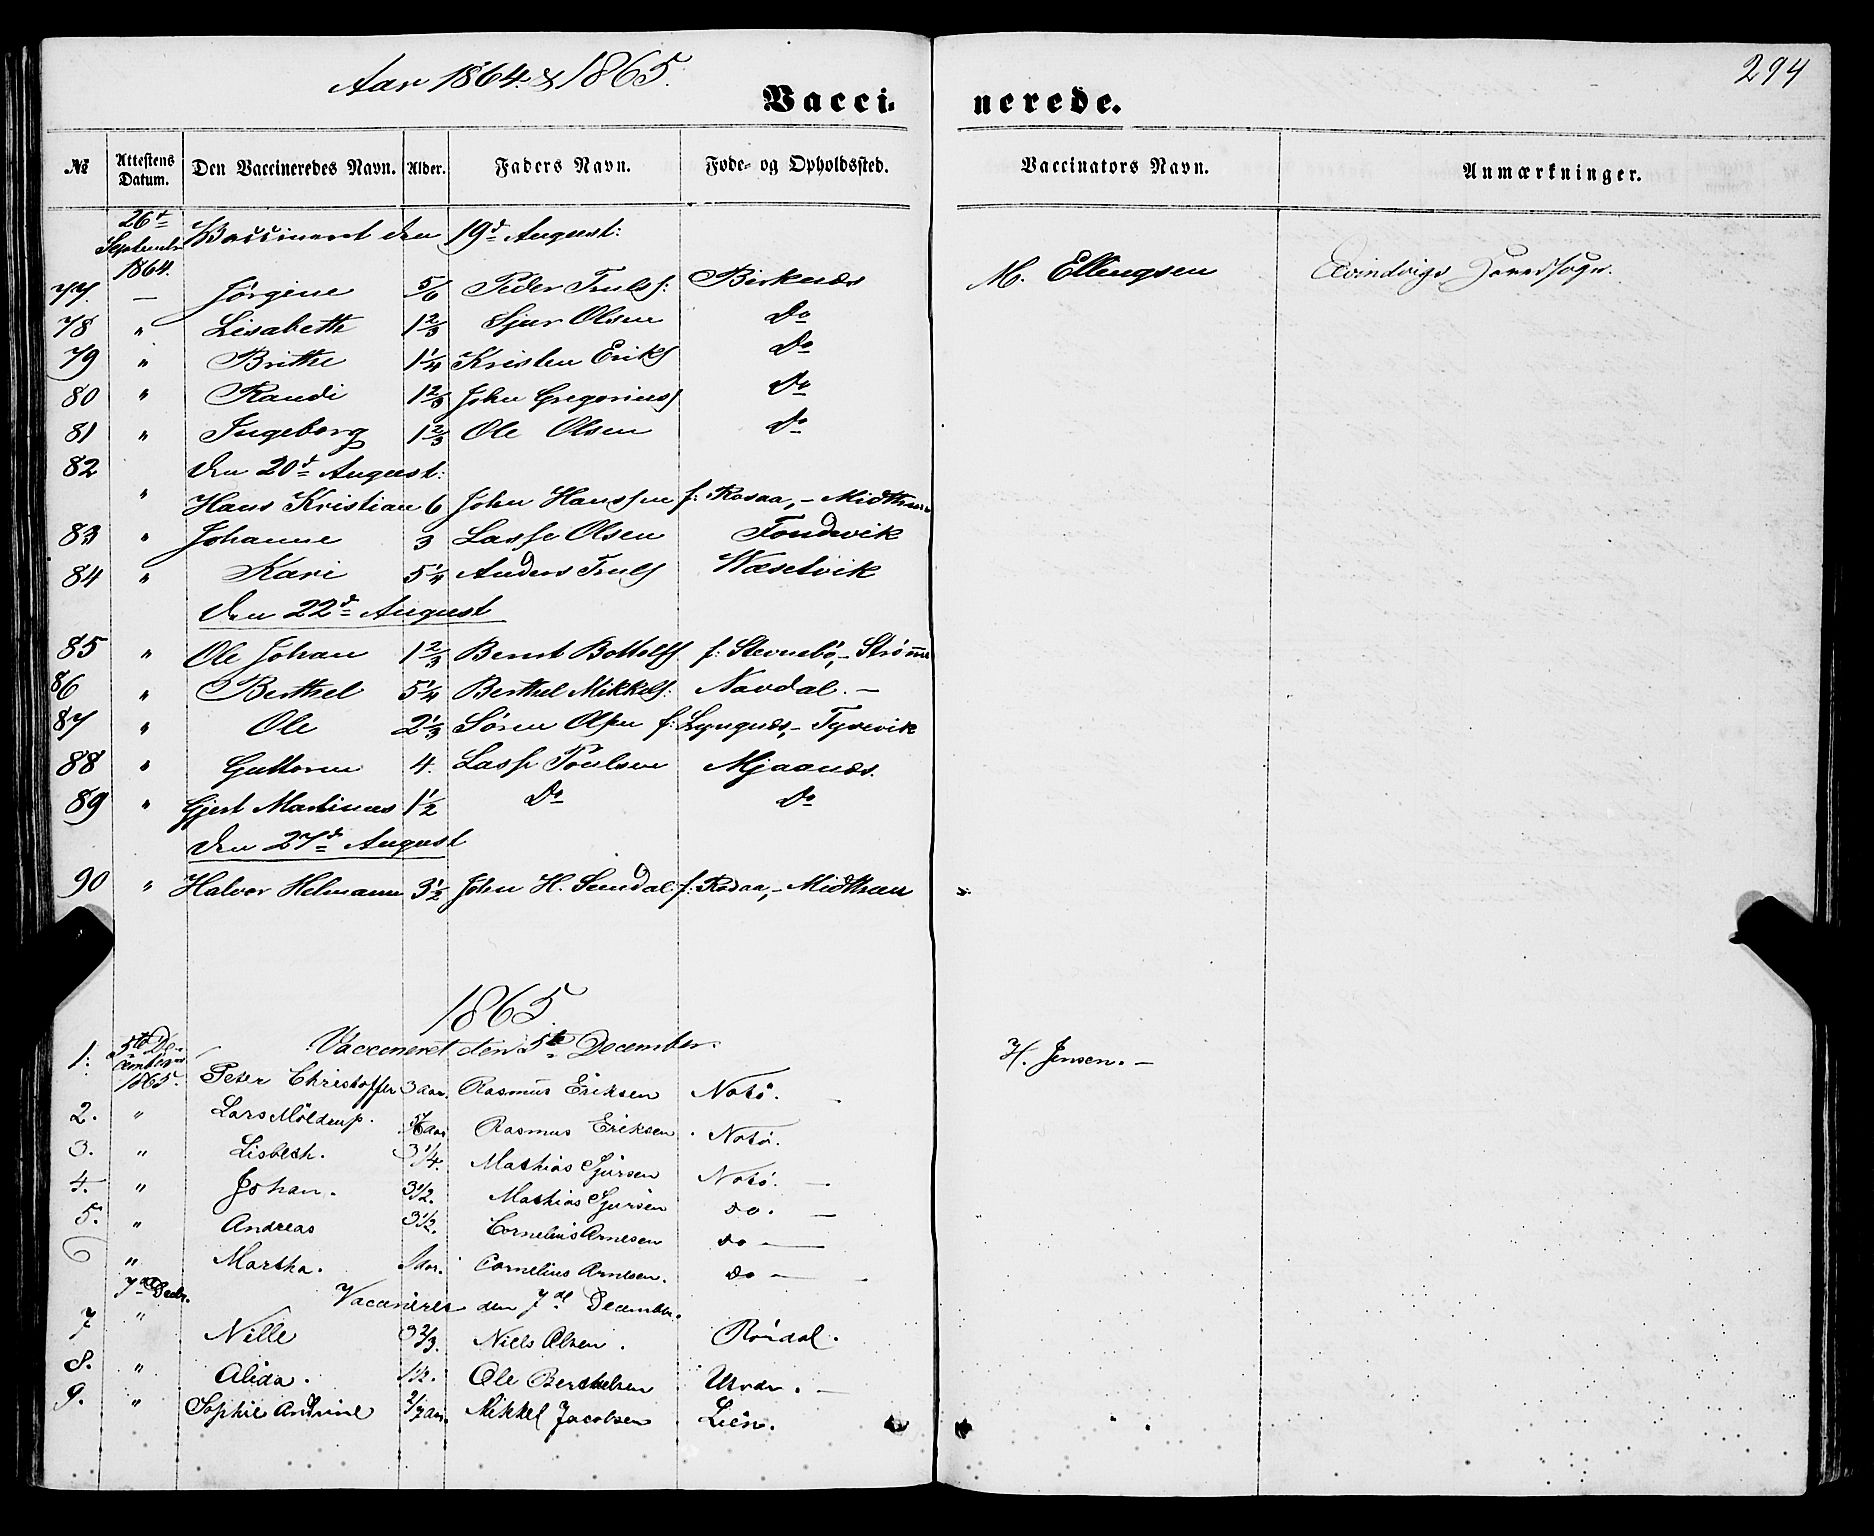 Aar 1864. & 1865.
294
Vacci-nerede.
№ Attestens Datum. Den Vaccineredes Navn. Alder. Faders Navn. Føde- og Opholdssted. Vaccinators Navn. Anmærkninger.
26d September 1864. Vaccineret den 19d August:
77. — Jørgine 5/6 Peder Trulss: Birknæs M. Ellingsen Evindvigs Hovedsogn.
78 " Lisabeth 1 2/3 Sjur Olsen Do
79 " Brithe 1 1/4 Kristen Eriks Do
80 " Randi 1 2/3 John Gregorius Do
81 " Ingeborg 1 2/3 Ole Olsen Do
82 den 20d August:
" Hans Kristian 6 John Hanssen f: Rosaa, - Midthun
83 " Johanne 3 Lasse Olsen Fondevik
84 " Kari 5 1/4 Anders Truls Wæsetvik
den 22d August
85 " Ole Johan 1 2/3 Bernt Bottolfs f: Stevnebø, - Strømme
86 " Berthel 5 1/4 Berthel Mikkels: Navdal. —
87 " Ole 2 1/3 Søren Olsen f: Lyngnæs, - Tysevik
88 " Guttorm 4. Lasse Poulsen Mjaanæs.
89 " Gjert Martinus 1 1/2 Do Do
den 27d August
90 " Halvor Helmann 3 1/2 John H. Sundal f: Rosaa, - Midthun
1865
Vaccineret den 5te December.
1: 5te December 1865. Peter Christoffer 3 aar. Rasmus Eriksen Notö. H. Jensen. —
2. " Lars Möldrup. 5/6 aar Rasmus Eriksen. Notö.
3. " Lisbeth. 3 1/4. Mathias Sjursen Notö. —
4. " Johan. 3 1/2. Mathias Sjursen do. —
5. " Andreas 3 1/2. Cornelius Arnesen do —
6 " Martha. 1 aar. Cornelius Arnesen. do —
7de Decbr. Vaccineret den 7de December.
7 " Nille 3 2/3. Niels Olsen. Röndal.
8. " Alida. 1 1/2. Ole Berthelsen —
9. " Sophie Andrine 2/7 aar. Mikkel Jacobsen Lien.